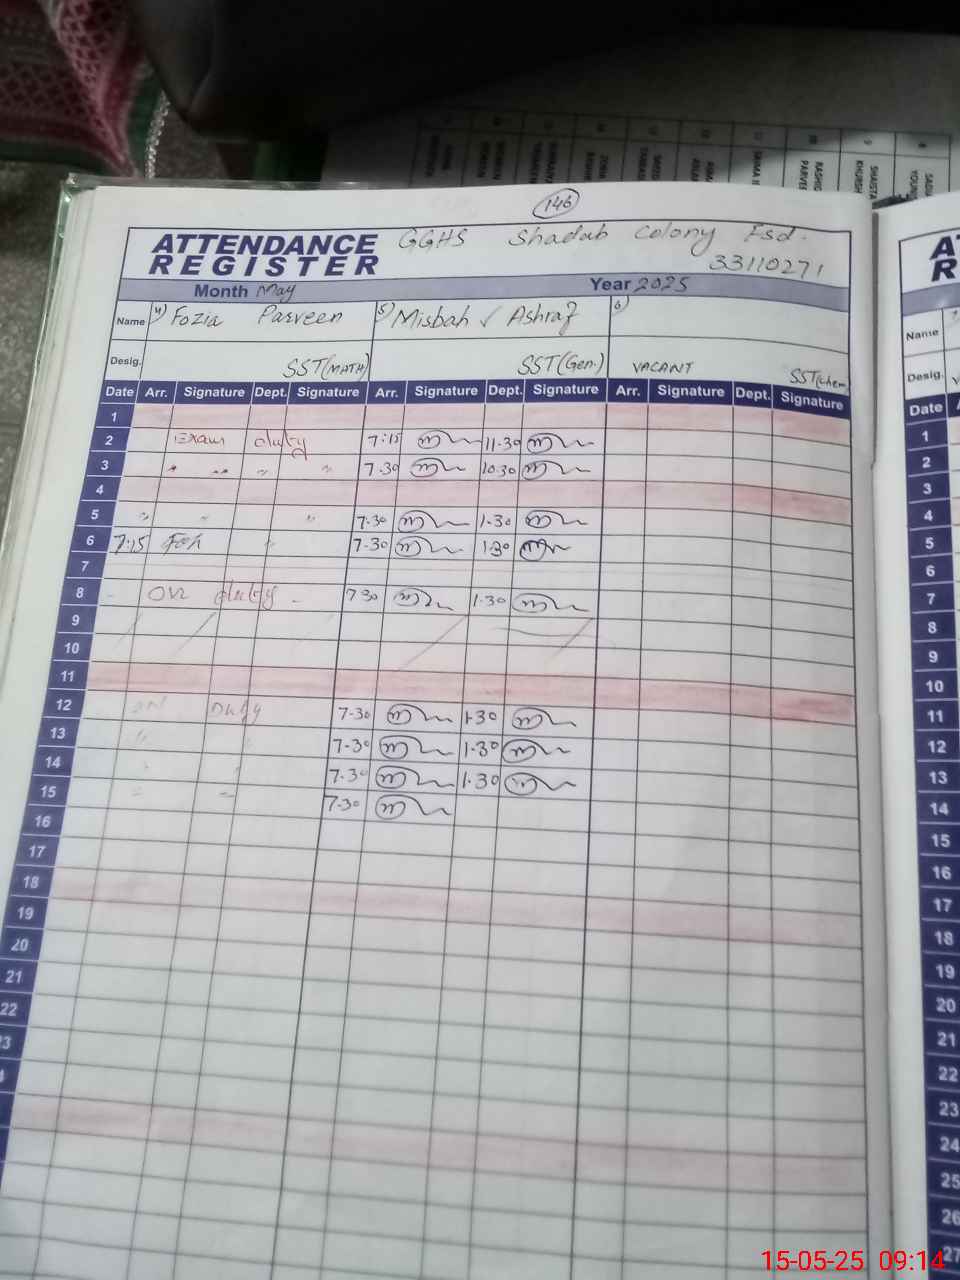 146
ATTENDANCE REGISTER GGHS Shadab Colony Fsd.
33110271
Month May Year 2025
Name 4) Fozia Parveen 5) Misbah Ashraf 6)
Desig. SST(MATH) SST(Gen.) VACANT SST(Chem)
Date Arr. Signature Dept. Signature Arr. Signature Dept. Signature Arr. Signature Dept. Signature
1
2 Exam duty 7:15 11.30
3 " " " " 7.30 10.30
4
5 " " " 7.30 1.30
6 7:15 " 7.30 1.30
7
8 on duty - 7 30 1.30
9
10
11
12 Duty 7.30 1.30
13 " 7.30 1.30
14 7.30 1.30
15 " " 7.30
16
17
18
19
20
21
22
23
A
R
Name
Desig.
Date
1
2
3
4
5
6
7
8
9
10
11
12
13
14
15
16
17
18
19
20
21
22
23
24
25
26
27
15-05-25 09:14